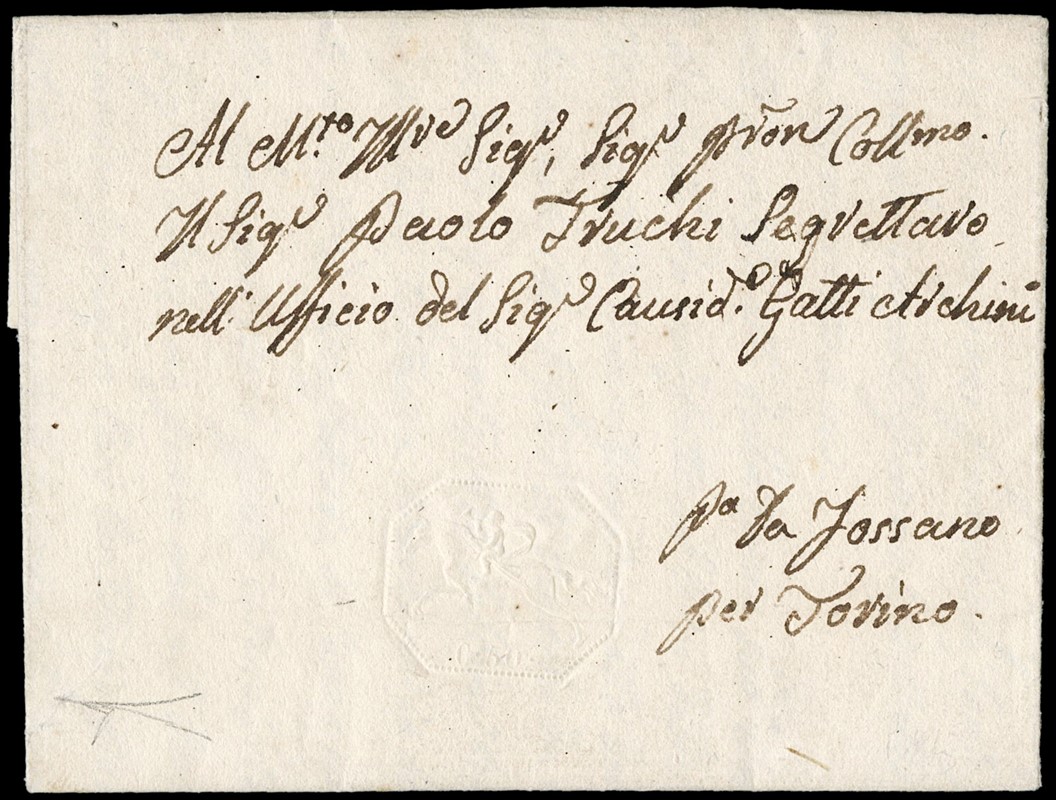 Al M.to Ill.re Sig.r, Sig.r Pron Collmo.
Il Sig.r Paolo Truchi Segrettaro
nell' Ufficio del Sig.r Causid.o Gatti Archini
Pa da Fossano
per Torino.